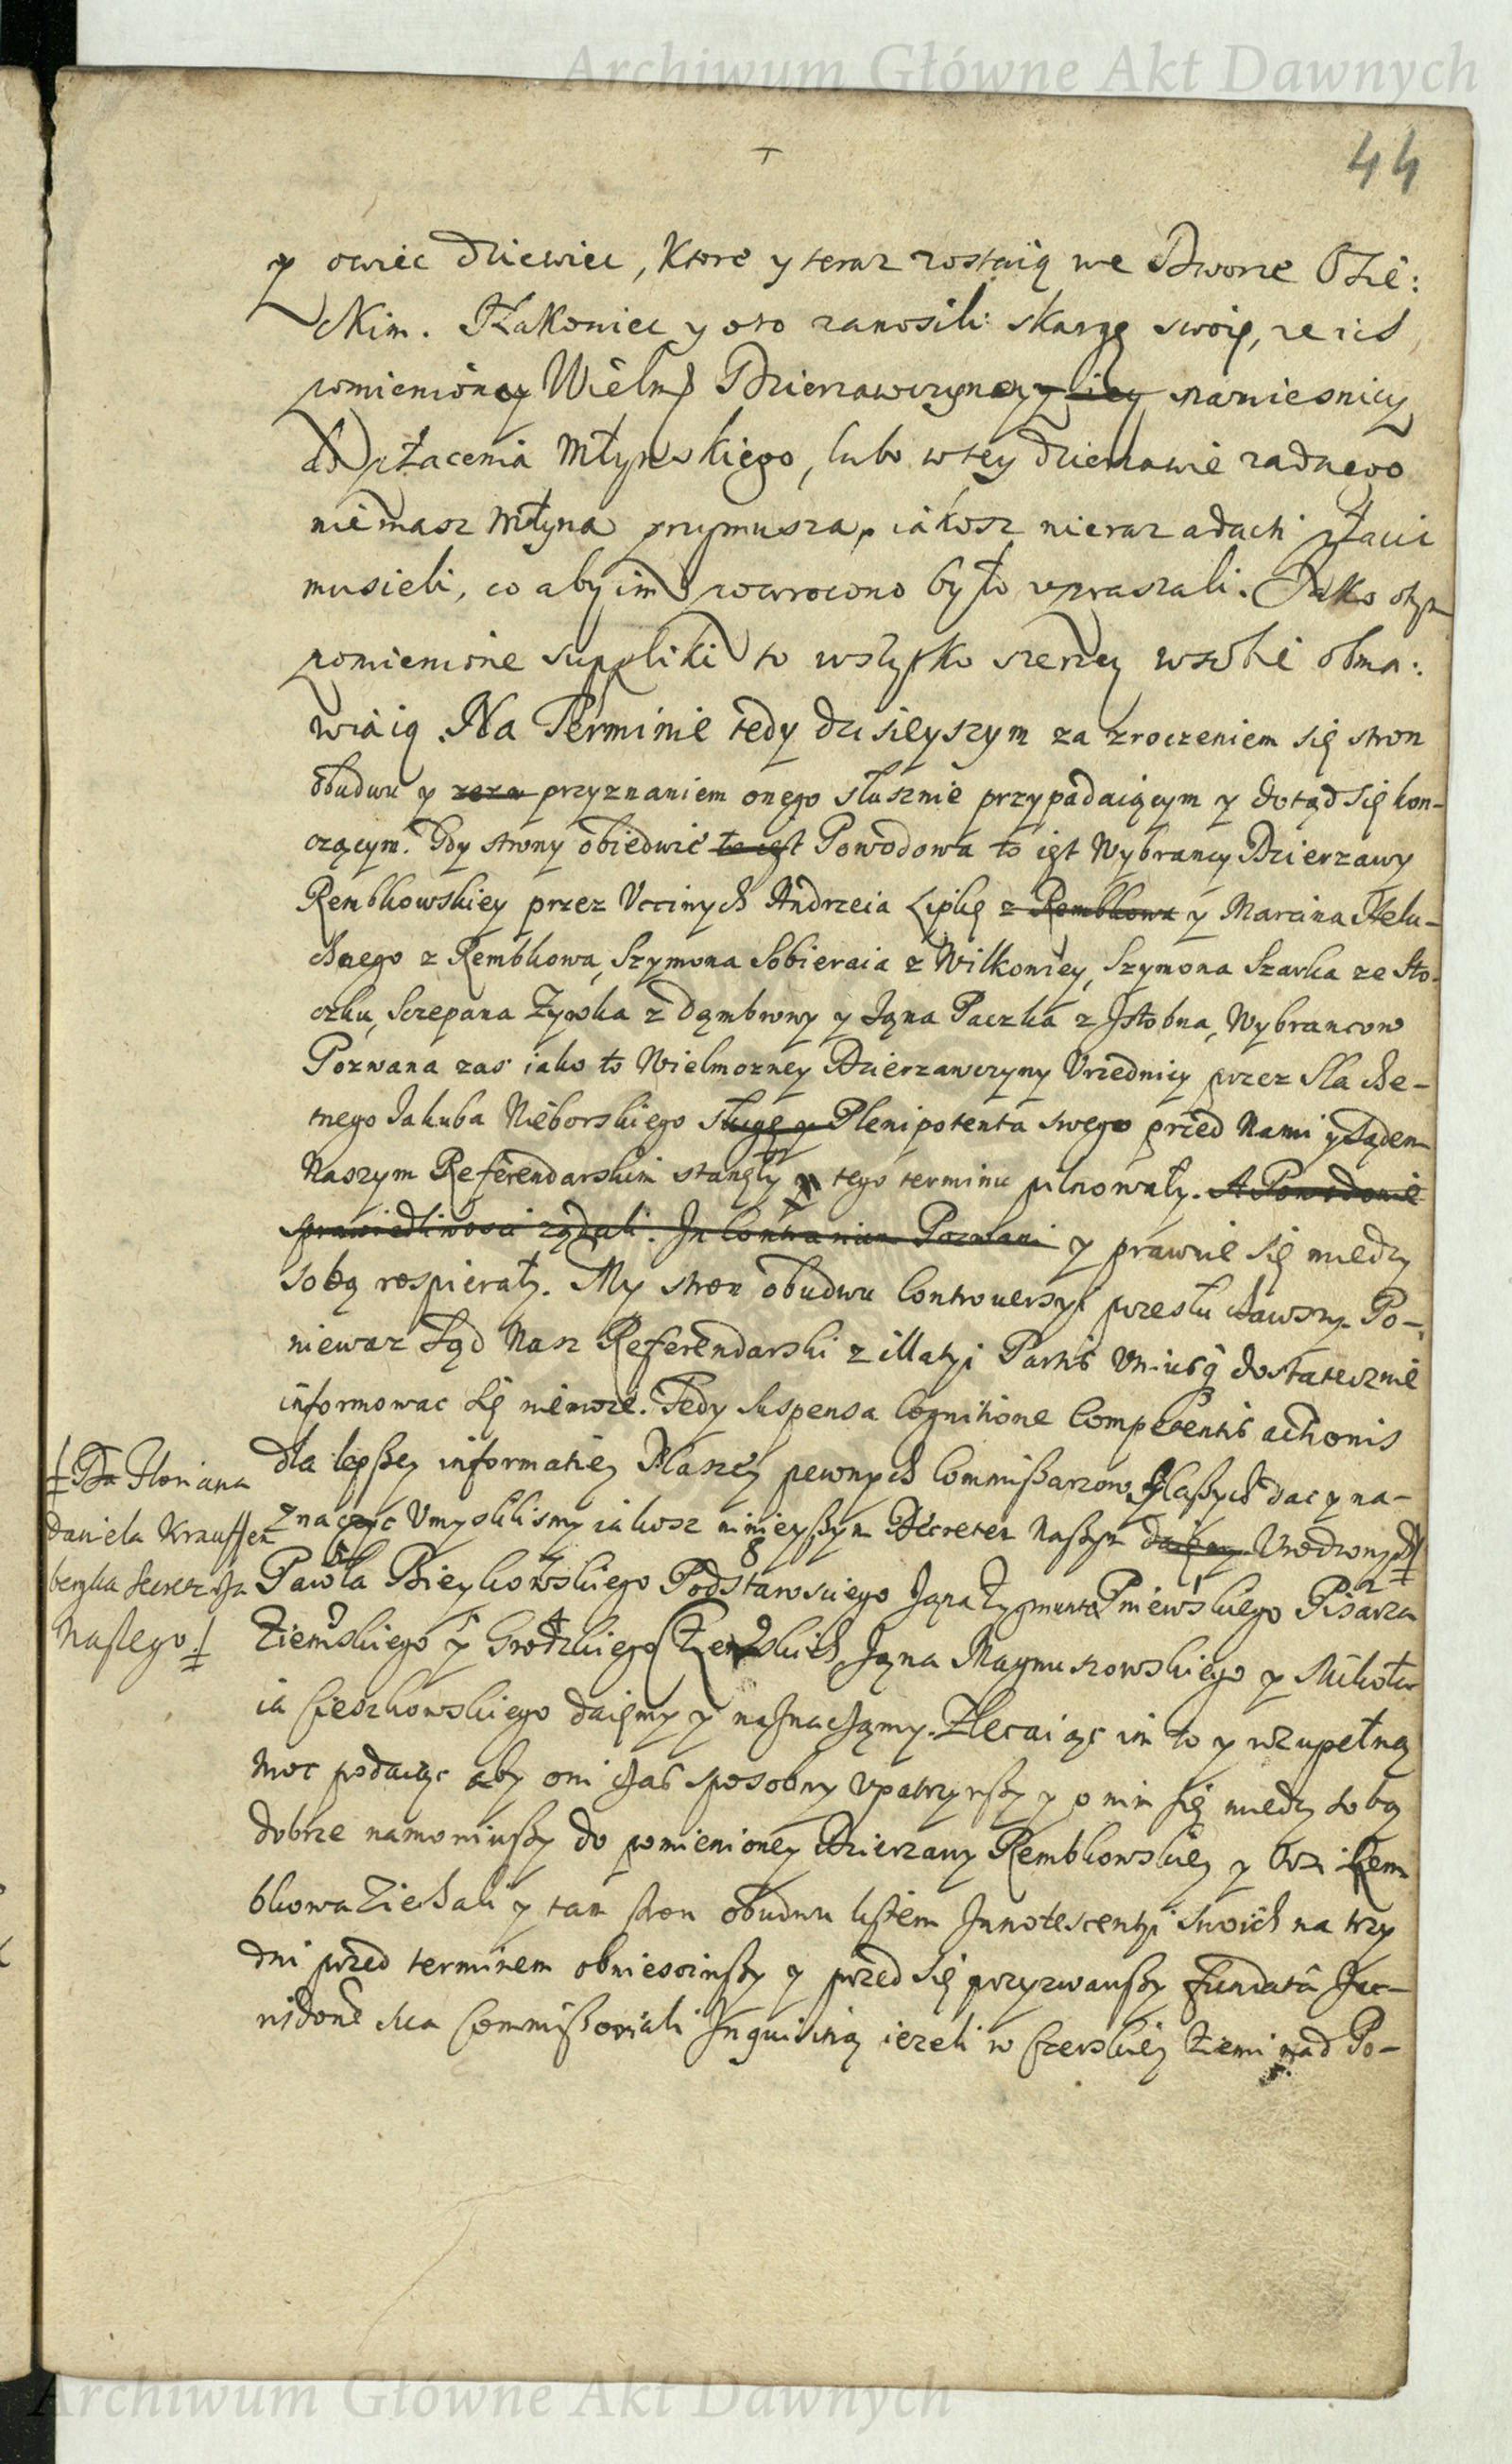 Archiwum Główne Akt Dawnych
44
y owiec dziewiec, ktore y teraz zostaią we Dworze Osie:
ckim. Nakoniec y oto zanosili skargę swoię, ze ich
pomienioney Wielm Dzierzawczyney y iey namiesnicy
do płacenia Młynskiego, lubo w tey dzierzawie zadnego
niemasz Młyna przymusza, iakosz nieraz a dach płacic
musieli, co aby im powrocono było upraszali. Jako o tym
pomienione suppliki to wszystko szerzey w sobie obma:
wiaią. Na Terminie tedy dzisieyszym za zroczeniem się stron
obudwu y przyznaniem onego słusznie przypadaiącym y dotąd się kon-
czącym. Gdy strony obiedwie to iest Powodowa to iest Wybrancy Dzierzawy
Rembkowskiey przez Uccziwych Andrzeia Lipkę z Rembkowa y Marcina Kełu-
chnego z Rembkowa, Szymona Sobieraia z Wilkoniey, Szymona Szarka ze Sto-
czku, Sczepana Zywka z Dąmbrowy y Jąna Paczka z Jstobna, Wybrancow
Pozwana zas iako to Wielmozney Dzierzawczyny Vrzednicy przez Slache-
tnego Jakuba Nieborskiego sługę y Plenipotenta swego przed Nami y Sądem
Naszym Referendarskim stanęły y tego terminu pilnowały. A Powodowie
sprawiedliwosci ządali. In Contrarium Pozwani y prawnie się miedzy
sobą rospierały. My stron obudwu Controuersyi przesłuchawszy. Po-
niewaz Sąd Nasz Referendarski z illatyi Partis Unius dostatecznie
informowac się niemoze. Tedy Suspensa Cognitione Competentis actionis
dla lepszey informatiey Naszey pewnych Commissarzow Naszych dac y na-
znaczyc Umyslilismy iakosz ninieyszym Decretem Naszym daiemy Vrodzonych
‡ Floriana
Daniela Krauffen
berzka Secretarza
Naszego ‡
Pawła Bieykowskiego Podstarosciego Jąna Zygmunta Pniewskiego Pisarza
Ziemskiego y Grodzkiego Czerskich Jąna Magnuszowskiego y Mikoła
ia Cieszkowskiego daięmy y naznaczamy. Zlecaiąc im to y wzupełną
moc podaiąc aby oni czas sposobny upatrzywszy y o nim się miedzy sobą
dobrze namowiwszy do pomienioney Dzierzawy Rembkowskiey y Wsi Rem
bkowa Ziechali y tam stron obudwu listem Innotescentyi swoich na trzy
dni przed terminem obniesciwszy y przed się przyzwawszy fundata Jur-
isdone sua Commissoriali Inquisitią iezeli w Czerskiey Ziemi nad Po-
Archiwum Główne Akt Dawnych